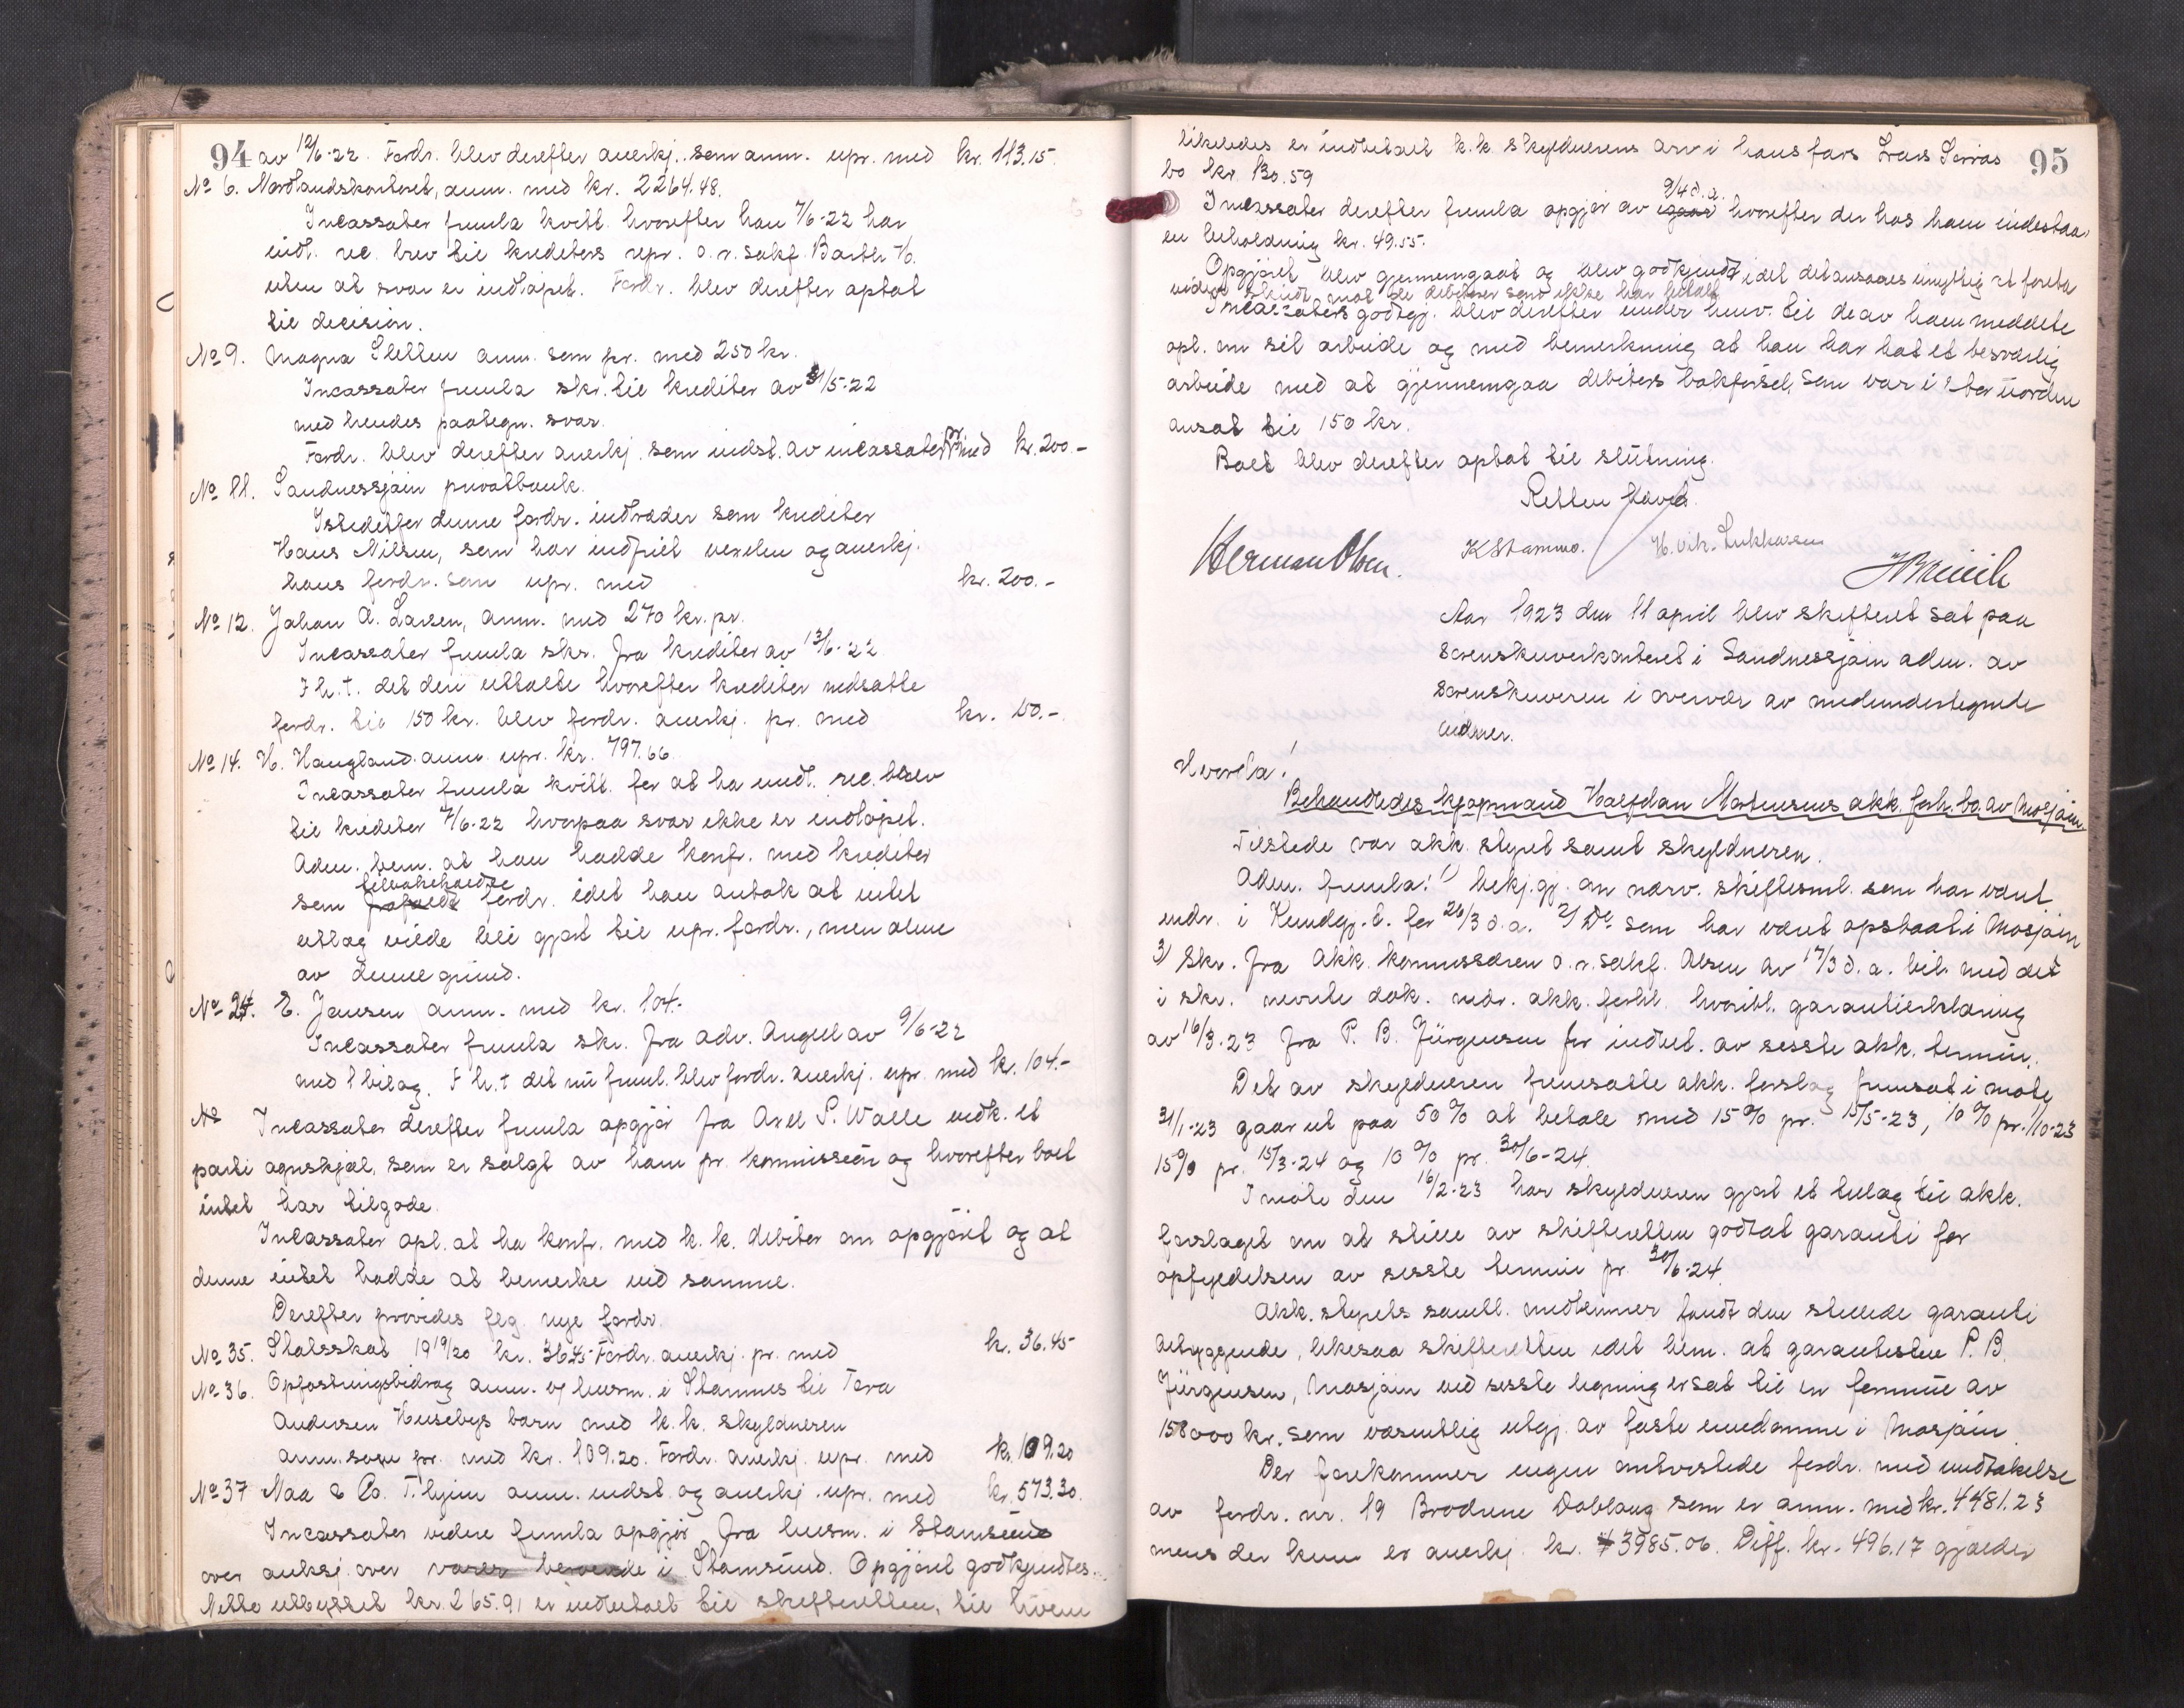 94 av 12/6-22. Fordr. blev derefter anerkj. som anm. upr. med kr. 113.15.
No 6. Nordlandskontoret, anm. med kr. 2264.48.
Incassator fremla kvitt. hvorefter han 7/6-22 har
indl. rec. brev til kreditors repr. o.r. sakf. Barth
uten at svar er indløpet. Fordr. blev derefter optat
til decision.
No 9. Magna Sletten anm. som pr. med 250 kr.
Incassator fremla skr. til kreditor av 31/5-22
med hendes paategn. svar.
Fordr. blev derefter anerkj. som indst. av incassator pr. med kr. 200.-
No 11. Sandnessjøen privatbank.
Istedetfor denne fordr. indtræder som kreditor
Hans Nilsen, som har indfriet vexelen og anerkj.
hans fordr. som upr. med kr. 200.-
No 12. Johan A. Larsen, anm. med 270 kr. pr.
Incassator fremla skr. fra kreditor av 13/6-22
I h.t. det deri uttalte hvorefter kreditor nedsatte
fordr. til 150 kr. blev fordr. anerkj. pr. med kr. 150.-
No 14. H. Haugland anm. upr. kr. 797.66.
Incassator fremla kvitt. for at ha indl. rec. brev
til kreditor 7/6-22 hvorpaa svar ikke er indløpet.
Adm. bem. at han hadde konf. med kreditor
som tilbakeholdte fordr. idet han antok at intet
utlæg vilde bli gjort til upr. fordr., men alene
av denne grund.
No 24. E. Jensen anm. med kr. 104.-
Incassator fremla skr. fra adv. Angell av 9/6-22
med 1 bilag. I h.t det nu freml. blev fordr. anerkj. upr. med kr. 104.-
No Incassator derefter fremla opgjør fra Axel S. Walle vedk. et
parti agnskjæl, som er solgt av ham pr. kommission og hvorefter boet
intet har tilgode.
Incassator opl. at ha konf. med k.k. debitor om opgjøret og at
denne intet hadde at bemerke ved samme.
Derefter prøvedes flg. nye fordr.
No 35. Statsskat 1919/20 kr. 36.45 Fordr. anerkj. pr. med kr. 36.45
No 36. Opfostringsbidrag anm. av lensm. i Stamnes til Tora
Andersen Husebys barn med k.k. skyldneren
anm. som pr. med kr. 109.20. Fordr. anerkj. upr. med kr. 109.20
No 37 Naa & Co. T.hjem anm. indst. og anerkj. upr. med kr. 573.30.
Incassator videre fremla opgjør fra lensm. i Stamsund
over auksj. over varer beroende i Stamsund. Opgjøret godkjendtes.
Netto utbyttet kr. 265.91 er indbetalt til skifteretten, til hvem
95
likeledes er indbetalt k.k. skyldnerens arv i hans fars Lars
bo kr. 130.59
Incassator derefter fremla opgjør av igaar 9/4 d.a. hvorefter der hos ham indestaar
en beholdning kr. 49.55.
Opgjøret blev gjennemgaat og blev godkjendt idet det ansaaes unyttig at foreta
videre skridt mot de debitorer som ikke har betalt.
Incassators godtgj. blev derefter under henv. til de av ham meddelte
opl. om sit arbeide og med bemerkning at han har hat et besværlig
arbeide med at gjennemgaa debitors bokførsel, som var i stor uorden
ansat til 150 kr.
Boet blev derefter optat til slutning.
Retten hævet.
Herman Olsen. K Stamnes.
Aar 1923 den 11 april blev skifteret sat paa
sorenskriverkontoret i Sandnessjøen adm. av
sorenskriveren i overvær av medundertegnede
vidner.
Hvorda!
Behandledes kjøpmand Halfdan Mortensens akk. forh. bo av Mosjøen.
Tilstede var akk. styret samt skyldneren.
Adm. fremla: 1) bekj.gj. om nærv. skiftesml. som har været
indr. i Kundgj.t. for 26/3 d.a. 2) Do som har været opslaat i Mosjøen
3) Skr. fra akk. kommissæren o.r. sakf. Olsen av 17/3 d.a. bil. med det
i skr. nevnte dok. vedr. akk. forhl. hvoribl. garantierklæring
av 16/3.23 fra P. B. Jürgensen for indbet. av sesste akk. termin.
Det av skyldneren fremsatte akk. forslag fremsat i møte
31/1-23 gaar ut paa 50 % at betale med 15 % pr. 15/5-23, 10 % pr. 1/10-23
15 % pr. 15/3-24 og 10 % pr. 30/6-24.
I møte den 16/2-23 har skyldneren gjort et tillæg til akk.
forslaget om at stille av skifteretten godtat garanti for
opfyldelsen av sesste termin pr. 30/6-24.
Akk. styrets samtl. medlemmer fandt den stillede garanti
betryggende, likesaa skifteretten idet bem. at garantisten P. B.
Jürgensen, Mosjøen ved sesste ligning er sat til en formue av
158000 kr. som væsentlig utgj. av faste eiendomme i Mosjøen.
Der forekommer ingen omtvistede fordr. med undtakelse
av fordr. nr. 19 Brødrene Dobloug som er anm. med kr. 4481.23
mens der kun er anerkj. kr. 3985.06. Diff. kr. 496.17 gjælder